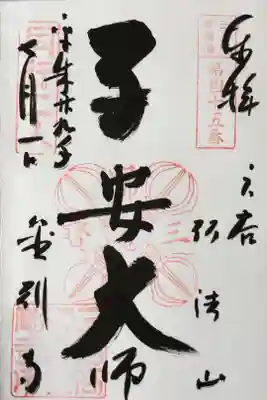 奉拝
三谷
弘法山
子安大師
平成廿九年
七月一日
金剛寺